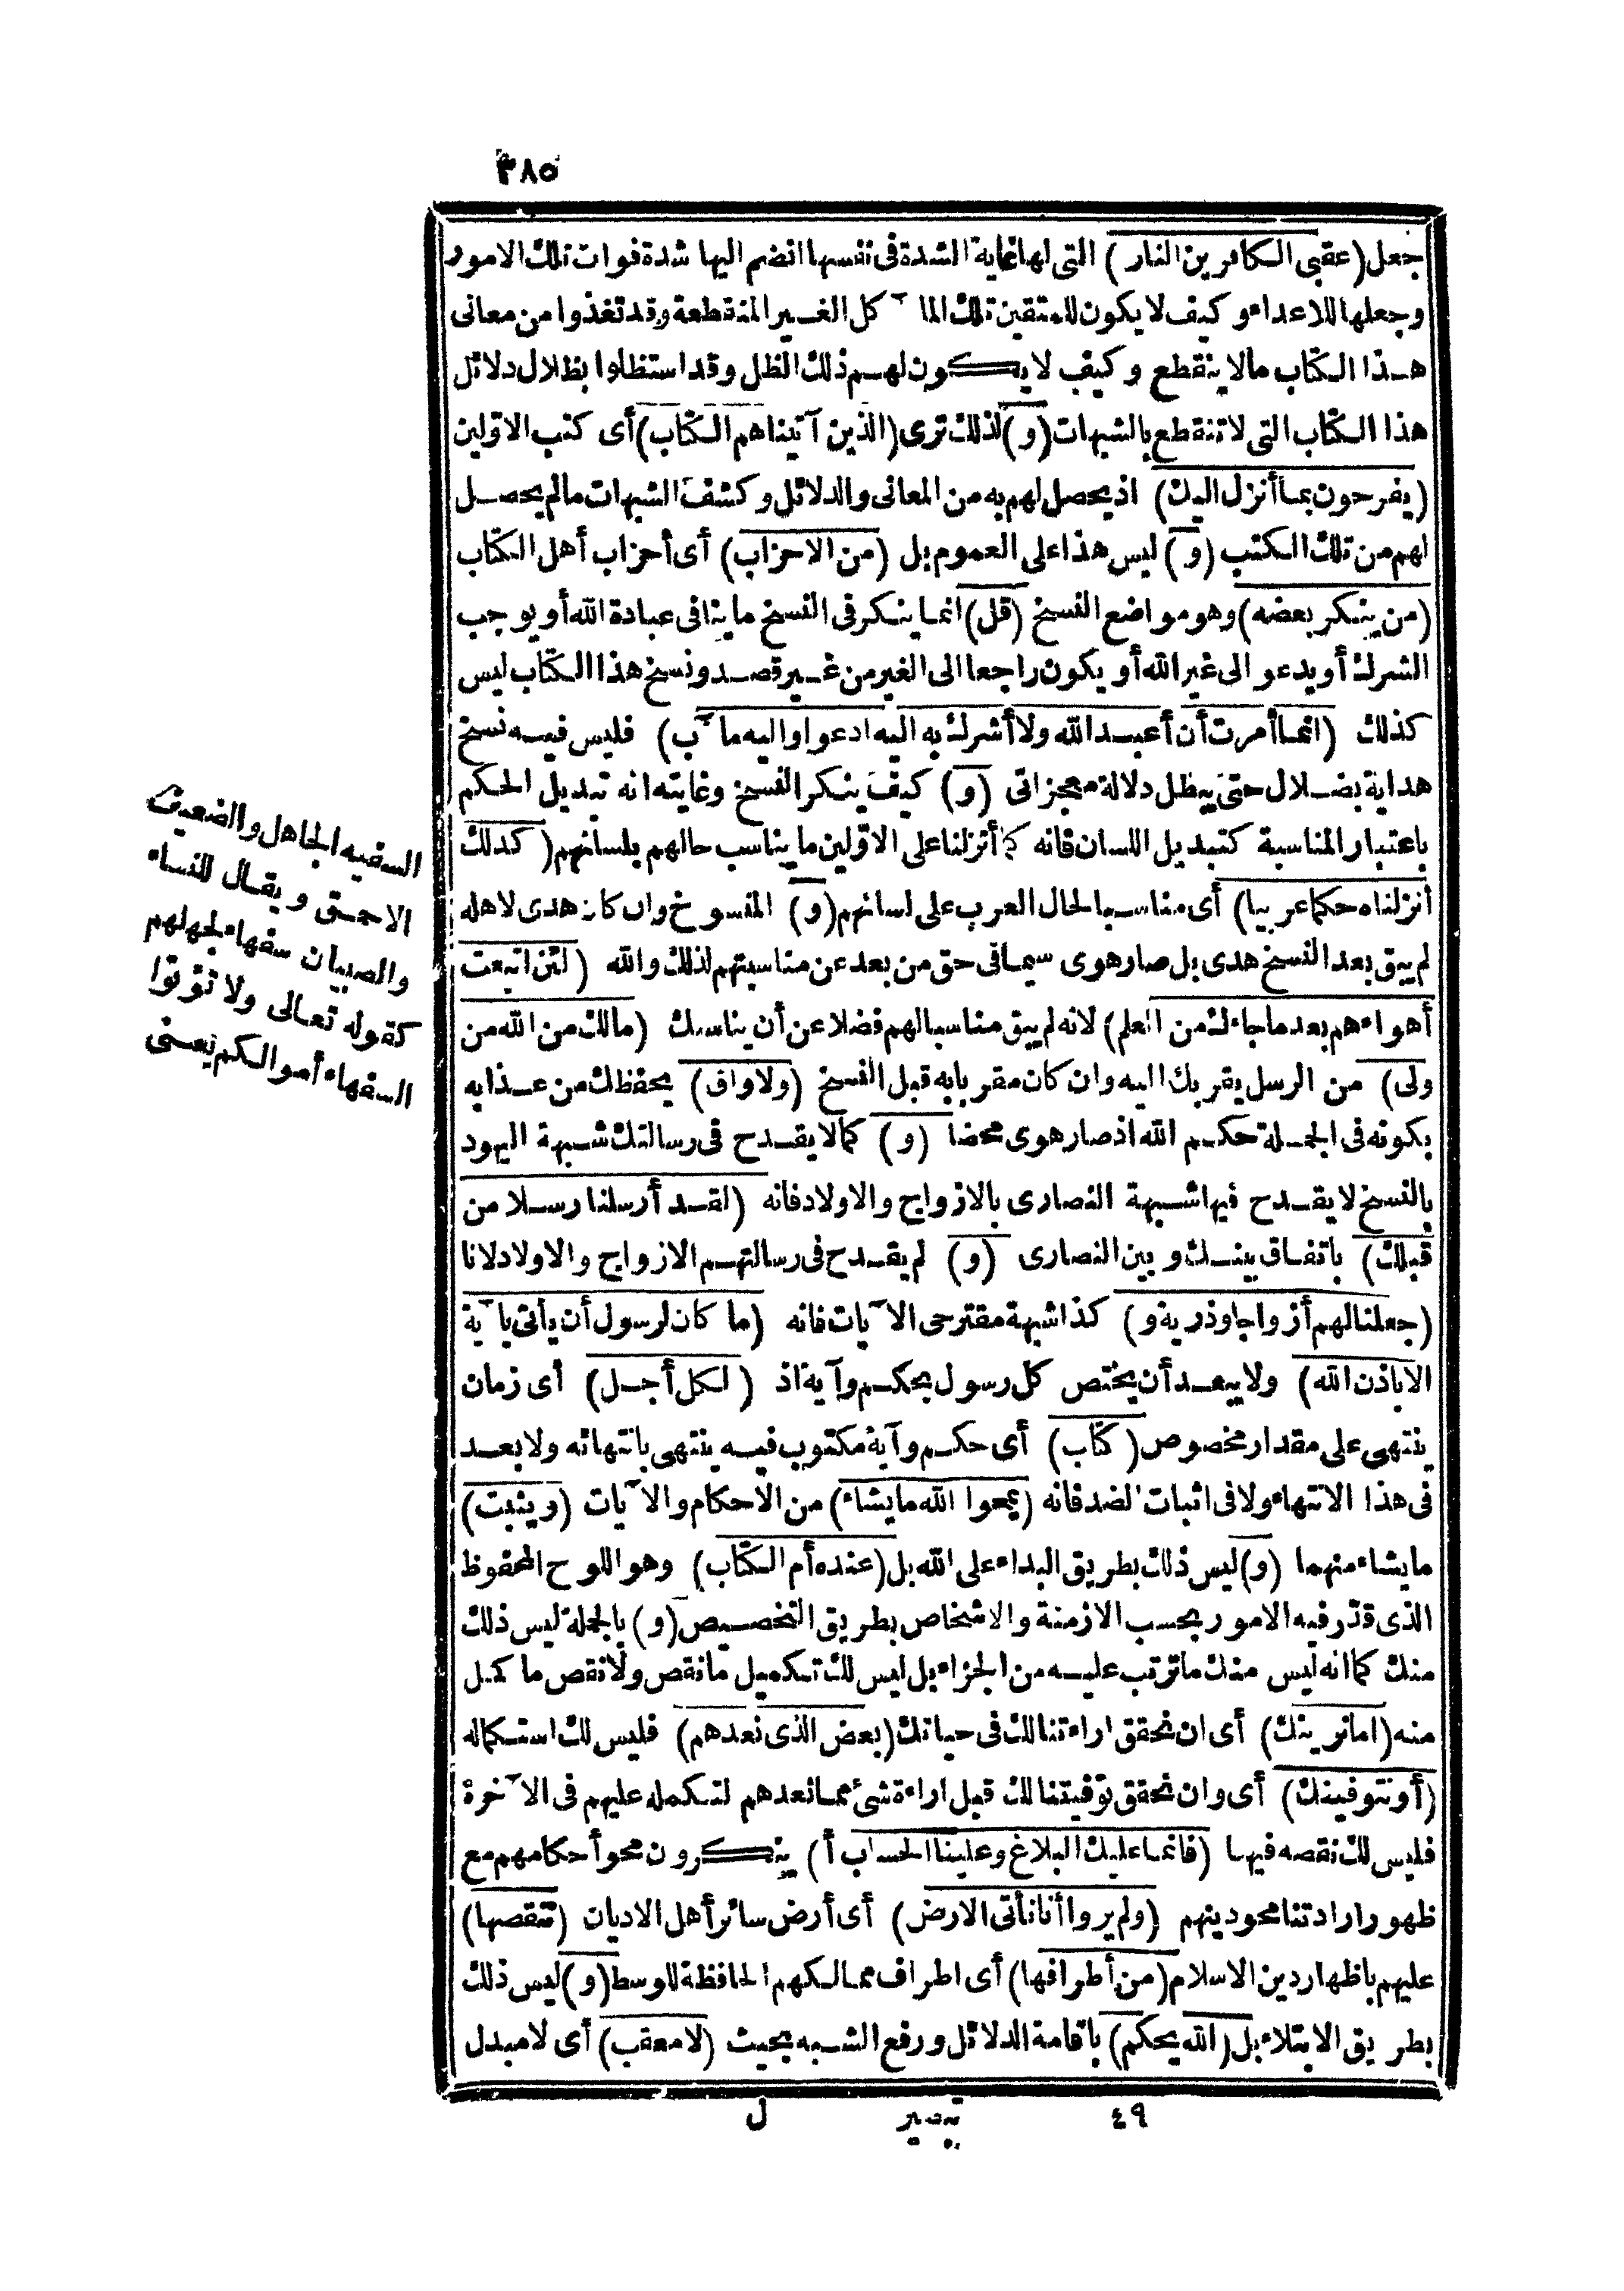 ٣٨٥
جعل (عقبى الكافرين النار) التى لها غاية الشدة فى نفسها انضم اليها شدة فوات تلك الامور
وجعلها للاعداء وكيف لا يكون للمتقين تلك المآكل الغير المنقطعة وقد تغذوا من معانى
هذا الكتاب مالا ينقطع وكيف لا يكون لهم ذلك الظل وقد استظلوا بظلال دلائل
هذا الكتاب التى لا تنقطع بالشبهات (و) لذلك ترى (الذين آتيناهم الكتاب) أى كتب الاوّلين
(يفرحون بما أنزل اليك) اذ يحصل لهم به من المعانى والدلائل وكشف الشبهات مالم يحصل
لهم من تلك الكتب (و) ليس هذا على العموم بل (من الاحزاب) أى أحزاب أهل الكتاب
(من ينكر بعضه) وهو مواضع النسخ (قل) انما ينكر فى النسخ ما ينافى عبادة الله أو يوجب
الشرك أو يدعو الى غير الله أو يكون راجعا الى الغير من غير قصد ونسخ هذا الكتاب ليس
كذلك (انما أمرت أن أعبد الله ولا أشرك به اليه ادعوا واليه مآب) فليس فيه نسخ
هداية بضلال حتى يبطل دلالة معجزاتى (و) كيف ينكر النسخ وغايته انه تبديل الحكم
باعتبار المناسبة كتبديل اللسان فانه كما أنزلنا على الاوّلين ما يناسب حالهم بلسانهم (كذلك
أنزلناه حكما عربيا) أى مناسبا لحال العرب على لسانهم (و) المنسوخ وان كان هدى لاهله
لم يبق بعد النسخ هدى بل صار هوى سيما فى حق من بعد عن مناسبتهم لذلك والله (لئن اتبعت
أهواءهم بعد ما جاءك من العلم) لانه لم يبق مناسبا لهم فضلا عن أن يناسبك (مالك من الله من
ولى) من الرسل يقربك اليه وان كان مقربا به قبل النسخ (ولا واق) يحفظك من عذابه
بكونه فى الجملة حكم الله اذ صار هوى محضا (و) كما لا يقدح فى رسالتك شبهة اليهود
بالنسخ لا يقدح فيها شبهة النصارى بالازواج والاولاد فانه (لقد أرسلنا رسلا من
قبلك) باتفاق بينك وبين النصارى (و) لم يقدح فى رسالتهم الازواج والاولاد لانا
(جعلنا لهم أزواجا وذرية و) كذا شبهة مقترحى الآيات فانه (ما كان لرسول أن يأتى بآية
الا باذن الله) ولا يبعد أن يختص كل رسول بحكم وآية اذ (لكل أجل) أى زمان
ينتهى على مقدار مخصوص (كتاب) أى حكم وآية مكتوب فيه ينتهى بانتهائه ولا بعد
فى هذا الانتهاء ولا فى اثبات الضد فانه (يمحوا الله ما يشاء) من الاحكام والآيات (ويثبت)
ما يشاء منهما (و) ليس ذلك بطريق البداء على الله بل (عنده أم الكتاب) وهو اللوح المحفوظ
الذى قدّر فيه الامور بحسب الازمنة والاشخاص بطريق التخصيص (و) بالجملة ليس ذلك
منك كما انه ليس منك ما ترتب عليه من الجزاء بل ليس لك تكميل ما نقص ولا نقص ما كمل
منه (اما نرينك) أى ان تحقق اراءتنا لك فى حياتك (بعض الذى نعدهم) فليس لك استكماله
(أو نتوفينك) أى وان تحقق توفيتنا لك قبل اراءة شئ مما نعدهم لتكمله عليهم فى الآخرة
فليس لك نقصه فيها (فانما عليك البلاغ وعلينا الحساب أ) ينكرون محو أحكامهم مع
ظهور ارادتنا محو دينهم (ولم يروا أنا نأتى الارض) أى أرض سائر أهل الاديان (ننقصها)
عليهم باظهار دين الاسلام (من أطرافها) أى اطراف ممالكهم الحافظة للوسط (و) ليس ذلك
بطريق الابتلاء بل (الله يحكم) باقامة الدلائل ورفع الشبه بحيث (لا معقب) أى لا مبدل
السفيه الجاهل والضعيف
الاحمق ويقال للنساء
والصبيان سفهاء لجهلهم
كقوله تعالى ولا تؤتوا
السفهاء أموالكم يعنى
٤٩ تبصير ل